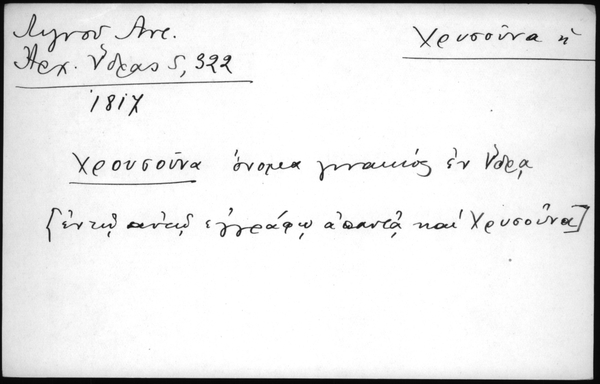 Λιγνοῦ Ἀντ.
Ἀρχ. Ὕδρας 5, 322
1817
Χρυσοῦνα ἡ
Χρουσοῦνα ὄνομα γυναικός ἐν Ὕδρᾳ
[ἐν τῷ αὐτῷ ἐγγράφῳ ἀπαντᾷ καί Χρυσοῦνα]